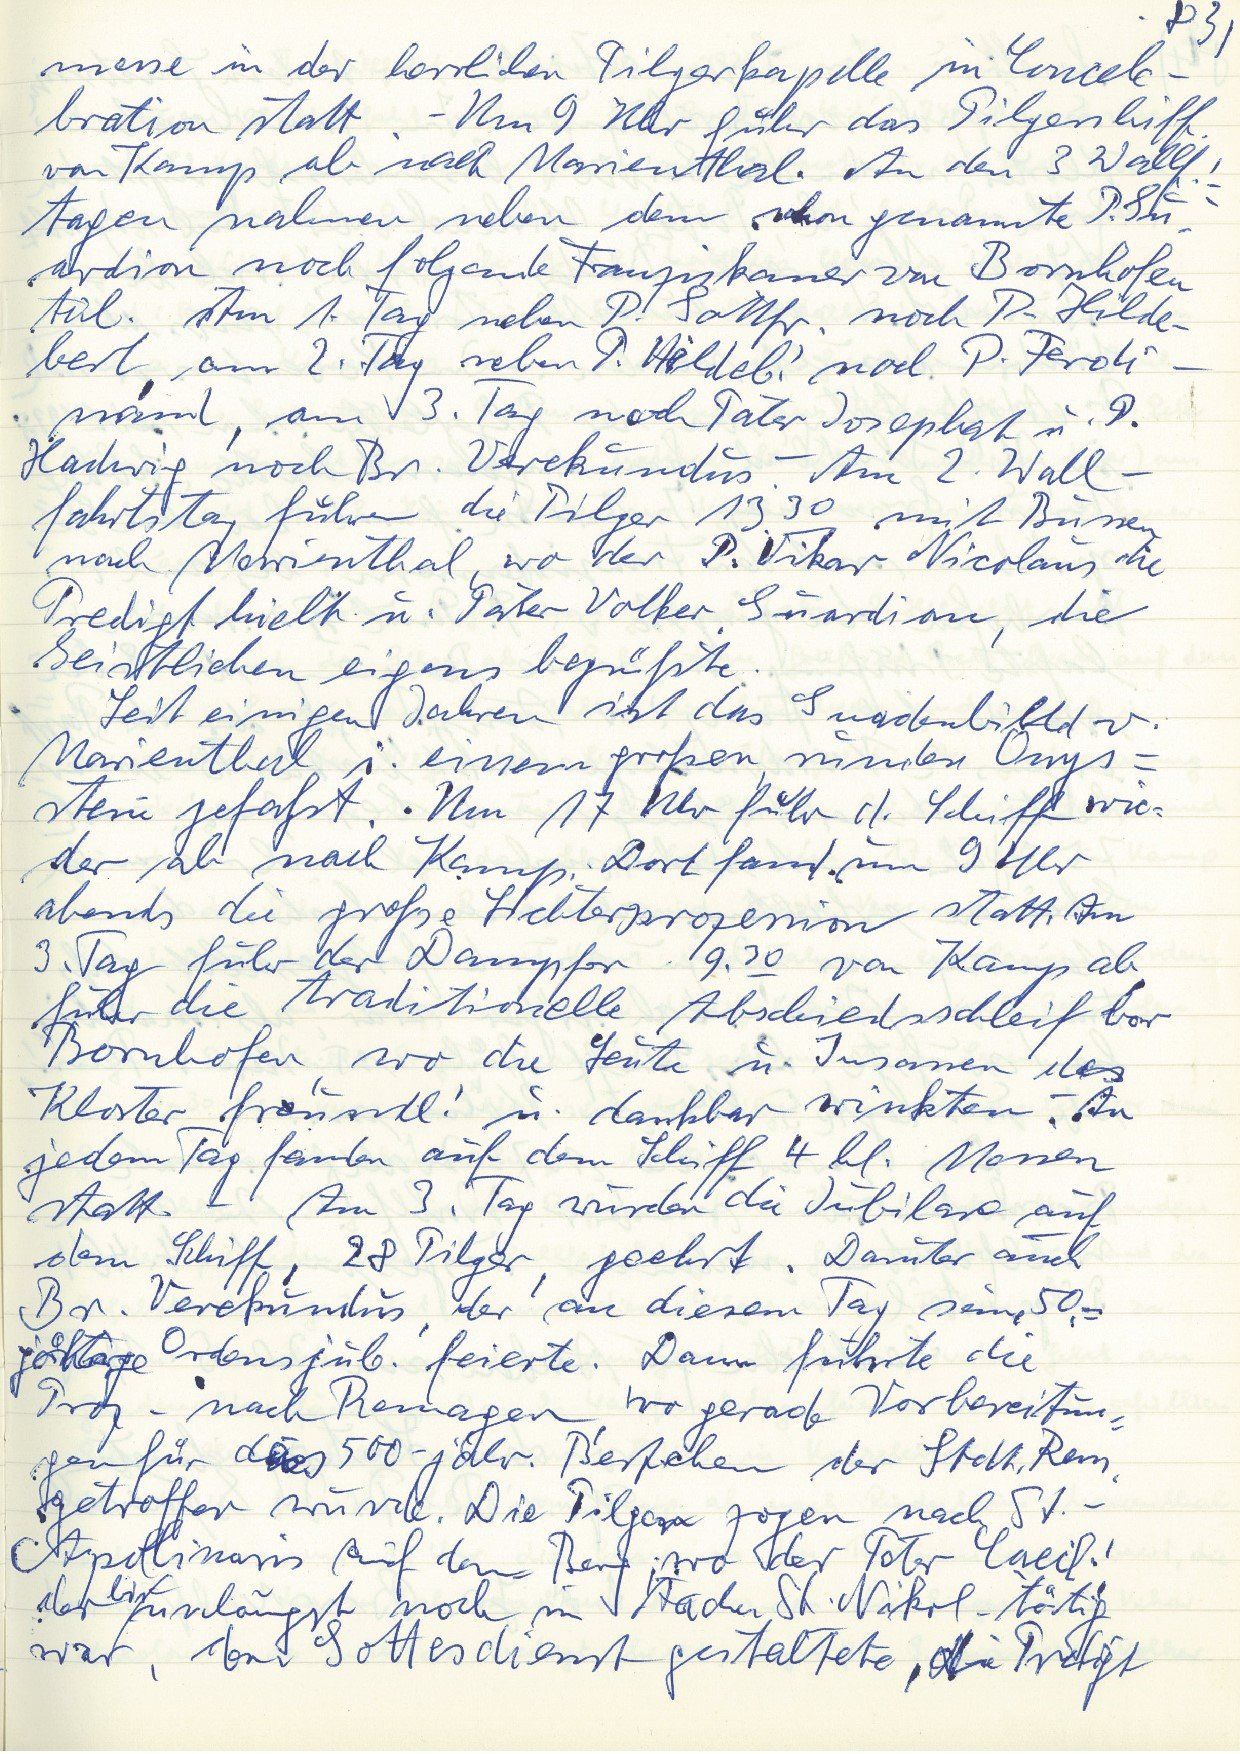 messe in der herrlichen Pilgerkapelle in Concele-
bration statt. - Um 9 Uhr fuhr das Pilgerschiff
von Kamp ab nach Marienthal. An den 3 Wallf!-
tagen nahmen neben dem schon genannte P. Gu-
ardion noch folgende Franziskaner von Bornhofen
teil. Am 1. Tag neben P. Gottfr. noch P. Hilde-
bert, am 2. Tag neben P. Hildeb! noch P. Ferdi-
nand, am 3. Tag noch Pater Josephat u. P.
Hadwig noch Br. Verekundus. - Am 2. Wall-
fahrtstag fuhren die Pilger 13 30 mit Bussen
nach Marienthal, wo der P. Vikar Nicolaus die
Predigt hielt u. Pater Volker, Guardion, die
Geistlichen eigens begrüßte.
Seit einigen Jahren ist das Gnadenbild v.
Marienthal i. einem großen runden Onyx=
stein gefaßt. . Um 17 Uhr fuhr d. Schiff wie=
der ab nach Kamp. Dort fand um 9 Uhr
abends die große Lichterprozession statt. Am
3. Tag fuhr der Dampfer 9.30 von Kamp ab
fuhr die traditionelle Abschiedsschleif vor
Bornhofen, wo die Leute u. Insassen des
Kloster freundl! u. dankbar winkten. - An
jedem Tag fanden auf dem Schiff 4 hl. Messen
statt. - Am 3. Tag wurden die Jubilare auf
dem Schiff, 28 Pilger, geehrt. Darunter auch
Br. Verekundus, der an diesem Tag sein 50.=
jährige Ordensjub. feierte. Dann führte die
Proz. nach Remagen, wo gerade Vorbereitun=
gen für das 500-jähr. Bestehen der Stadt Rem.
getroffen wurde. Die Pilger zogen nach St.-
Apollinaris auf dem Berg, wo der Pater Caecil!
der bis unlängst noch in Aachen St. Nikol- tätig
war, den Gottesdienst gestaltete, die Predigt